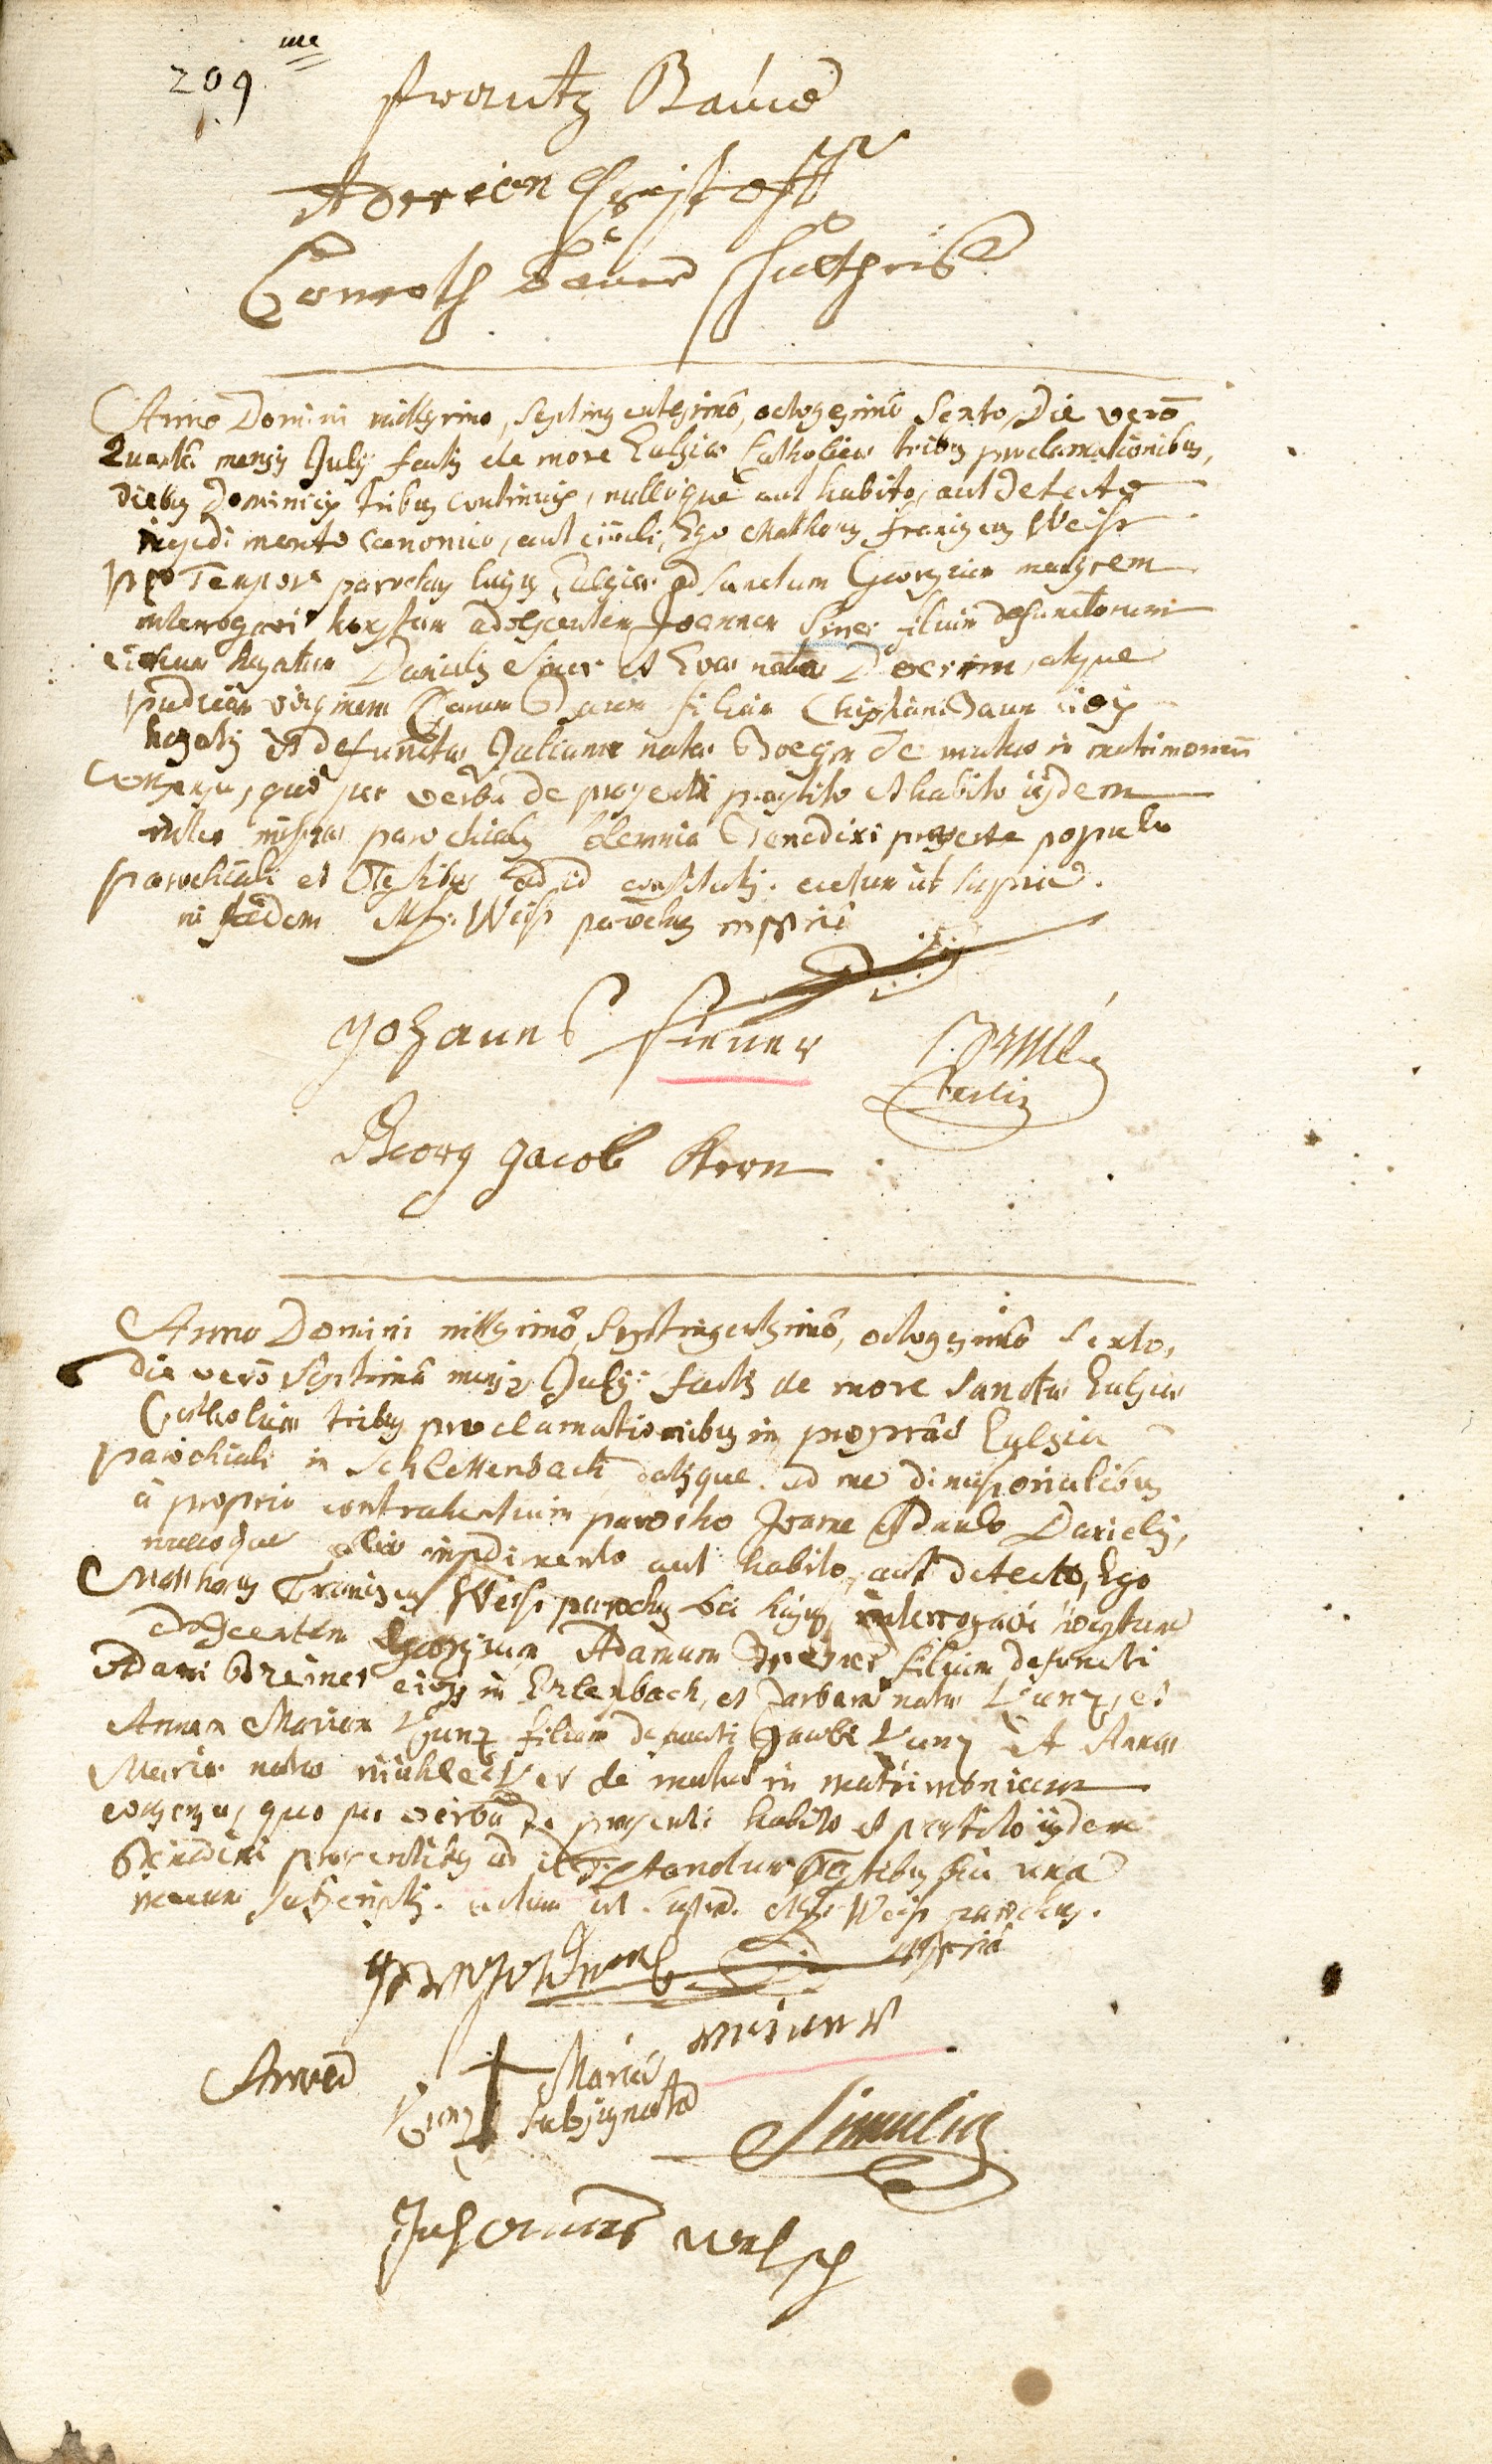 209 me
frantz Baur
Aderian Christoff
Conrath Baur schultheis
Anno Domini millesimo, septingentesimo, octogesimo Sexto, Die verò
Quartâ mensis July factis de more Eccliæ Catholicæ tribus proclamationibus,
diebus Dominicis tribus continuis, nulloque aut habito, aut detecto
impedimento canonico, aut civili, Ego Mathæus franciscus Weiss
pro Tempore parochus hujus Eccliæ ad sanctum Georgium martyrem
interrogavi honestum adolescentem Joannem Siner filium defunctorum
civium hujatum Danielis Siner et Evæ natæ Doerrin, atque
pudicam virginem Daum filiam Christiani Daum civis
hujatis et defunctæ Julianæ natæ de mutuo in matrimonium
consensu, quo per verba de præsenti præstito et habito iisdem
inter missæ parochialis solemnia Benedixi præsente populo
parochiali et Testibus ad id constitutis. actum ut supra.
in fidem Mf. Weiss parochus mppriâ
Johannes siener
testis
Georg Jacob Kern
Anno Domini millesimô Septingentesimô, octogesimô Sexto,
die verò Septimâ mensis July: factis de more sanctæ Eccliæ
Catholicæ tribus proclamationibus in propriâ Ecclesiâ
parochiali in Schlettenbach datisque ad me dimissorialibus
à proprio contrahentium parocho Joanne Paulo Danielis,
nulloque alio impedimento aut habito, aut detecto, Ego
Mathæus Franciscus Weiss parochus loci hujus interrogavi honestum
adolescentem Georgium Adamum Breiner filium defuncti
Adami Breiner civis in Erlenbach, et Barbaræ natæ Kunz, et
Annam Mariam Kunz filiam defuncti Jacobi Kunz et Annæ
Mariæ natæ mühlecker de mutuo in matrimonium
consensu, quo per verba de præsenti habito et præstito iisdem
Benedixi præsentibus ad id testandum Testibus hic una
mecum subscriptis. actum ut supra. Mf. Weiss parochus.
mppriâ
Anna Maria
Kunz subsignata
Johannes welsch